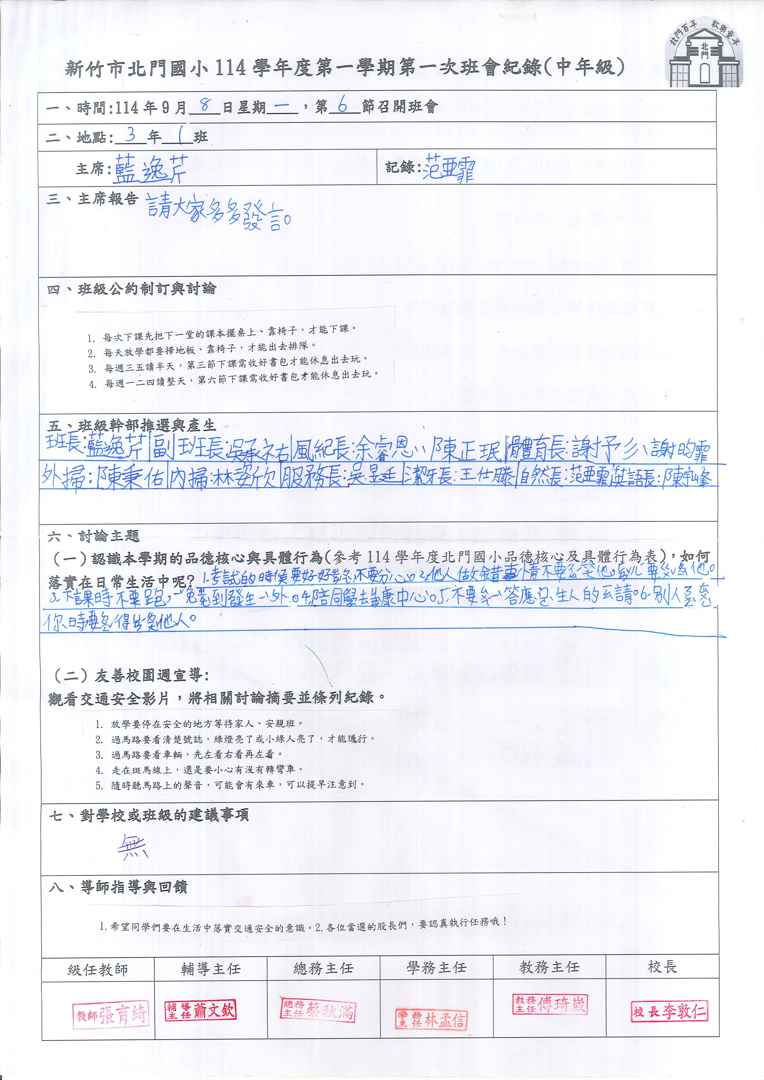 北門百年 歡樂童年
北門
新竹市北門國小114學年度第一學期第一次班會紀錄(中年級)
一、時間:114年9月8日星期一，第6節召開班會
二、地點:3年1班
主席:藍逸芹 記錄:范亞霏
三、主席報告 請大家多多發言。
四、班級公約制訂與討論
1. 每次下課先把下一堂的課本擺桌上、靠椅子，才能下課。
2. 每天放學都要掃地板、靠椅子，才能出去排隊。
3. 每週三五讀半天，第三節下課需收好書包才能休息出去玩。
4. 每週一二四讀整天，第六節下課需收好書包才能休息出去玩。
五、班級幹部推選與產生
班長:藍逸芹 副班長:吳承祐 風紀長:余睿恩、陳正珉 體育長:謝予、謝昀霏
外掃:陳秉佑 內掃:林姿欣 服務長:吳昱廷 潔牙長:王仕滕 自然長:范亞霏 英語長:陳宇峰
六、討論主題
(一)認識本學期的品德核心與具體行為(參考114學年度北門國小品德核心及具體行為表)，如何
落實在日常生活中呢? 1.考試的時候要好好寫不要分心。2.他人做錯事情不要笑他。
3.下課時不要跑，發生意外。4.陪同學去健康中心。5.不要答應陌生人的邀請。6.別人
你時要
(二)友善校園週宣導:
觀看交通安全影片，將相關討論摘要並條列紀錄。
1. 放學要停在安全的地方等待家人、安親班。
2. 過馬路要看清楚號誌，綠燈亮了或小綠人亮了，才能通行。
3. 過馬路要看車輛，先左看右看再左看。
4. 走在斑馬線上，還是要小心有沒有轉彎車。
5. 隨時聽馬路上的聲音，可能會有來車，可以提早注意到。
七、對學校或班級的建議事項
無
八、導師指導與回饋
1.希望同學們要在生活中落實交通安全的意識。2.各位當選的股長們，要認真執行任務哦！
級任教師 輔導主任 總務主任 學務主任 教務主任 校長
教師張育綺 輔導主任蕭文欽 總務主任 學務主任林孟信 教務主任傅琦崴 校長李敦仁